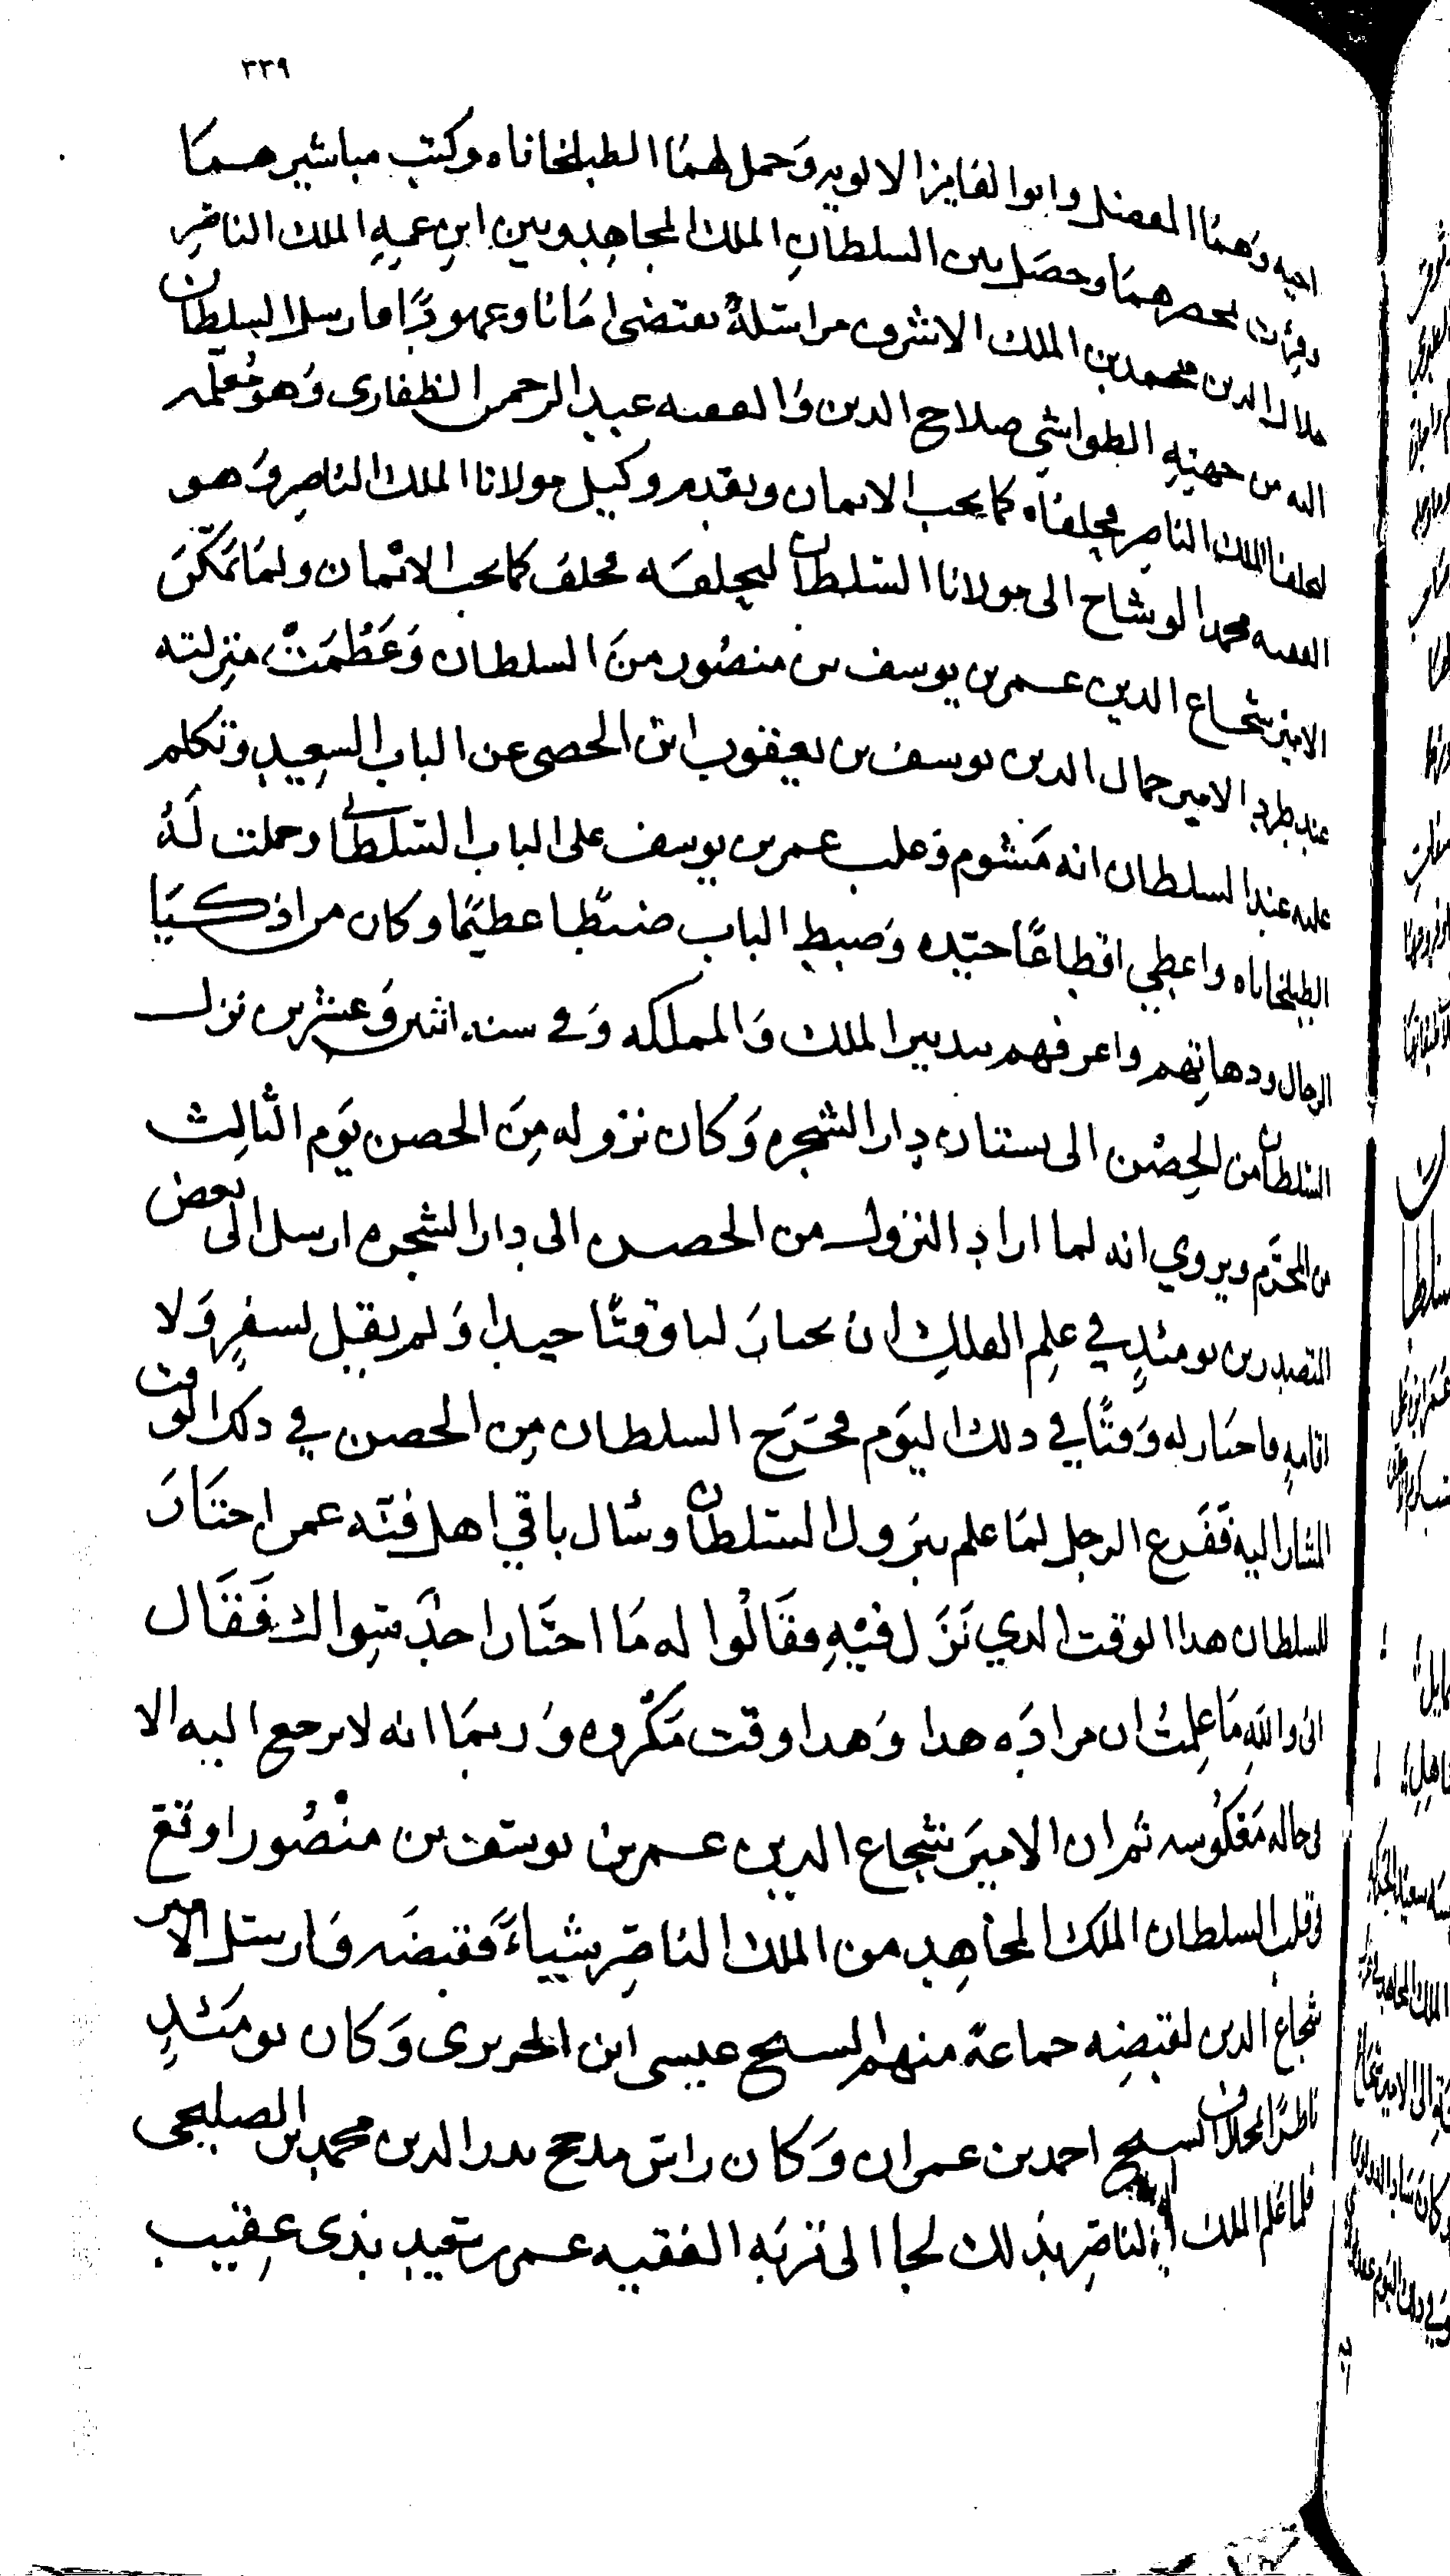 ٣٣٩
اخيه وهما المفضل وابوا الفايز الالويه وحمل لهما الطبلخاناه وكتب مباشيرهما
وقرئت بحصرهما وحصل بين السلطان الملك المجاهد وبين ابن عمه الملك الناصر
جلال الدين محمد بن الملك الاشرف مراسلة بمقتضى امانا وعهودا فارسل السلطان
اليه من جهته الطواشي صلاح الدين والفقيه عبد الرحمن الظفاري وهو معلمه
لحلفا الملك الناصر فحلفاه كما يجب الايمان وتقدم وكيل مولانا الملك الناصر وهو
الفقيه محمد الوشاح الى مولانا السلطان ليحلفه فحلف كما يجب الائمان ولما تمكن
الامير شجاع الدين عمر بن يوسف بن منصور من السلطان وعظمت منزلته
عنده طرد الامير جمال الدين يوسف بن يعقوب ابن الحصى عن الباب السعيد وتكلم
عليه عند السلطان انه مشوم وغلب عمر بن يوسف على الباب السلطاني وحملت له
الطبلخاناه واعطي اقطاعا جيده وضبط الباب ضبطا عظيما وكان من اذكيا
الرجال ودهاتهم واعرفهم بتدبير الملك والمملكه وفي سنه اثنين وعشرين نزل
السلطان من الحصن الى بستان دار الشجره وكان نزوله من الحصن يوم الثالث
من المحرم ويروي انه لما اراد النزول من الحصن الى دار الشجره ارسل الى بعض
المتصدرين يومئذ في علم الفلك ان يختار لنا وقتا جيدا ولم يقل لسفر ولا
اقامه فاختار له وقتا في ذلك اليوم فخرج السلطان من الحصن في ذلك الوقت
المشار اليه ففزع الرجل لما علم بنزول السلطان وسال باقي اهل فنه عمن اختار
للسلطان هذا الوقت الذي نزل فيه فقالوا له ما اختار احد سواك فقال
اني والله ما علمت ان مراده هذا وهذا وقت مكروه وربما انه لا يرجع اليه الا
في حاله معكوسه ثم ان الامير شجاع الدين عمر بن يوسف بن منصور اوقع
في قلب السلطان الملك المجاهد من الملك الناصر شياء فقبضه وارسل الامير
شجاع الدين لقبضه جماعة منهم الشيخ عيسى ابن الحريرى وكان يومئذ
ناظرا بمخلاف الشيخ احمد بن عمران وكان راس مدحج بدر الدين محمد بن الصليحى
فلما علم الملك الناصر بذلك لجا الى تربه الفقيه عمر بن سعيد بذى عقيب